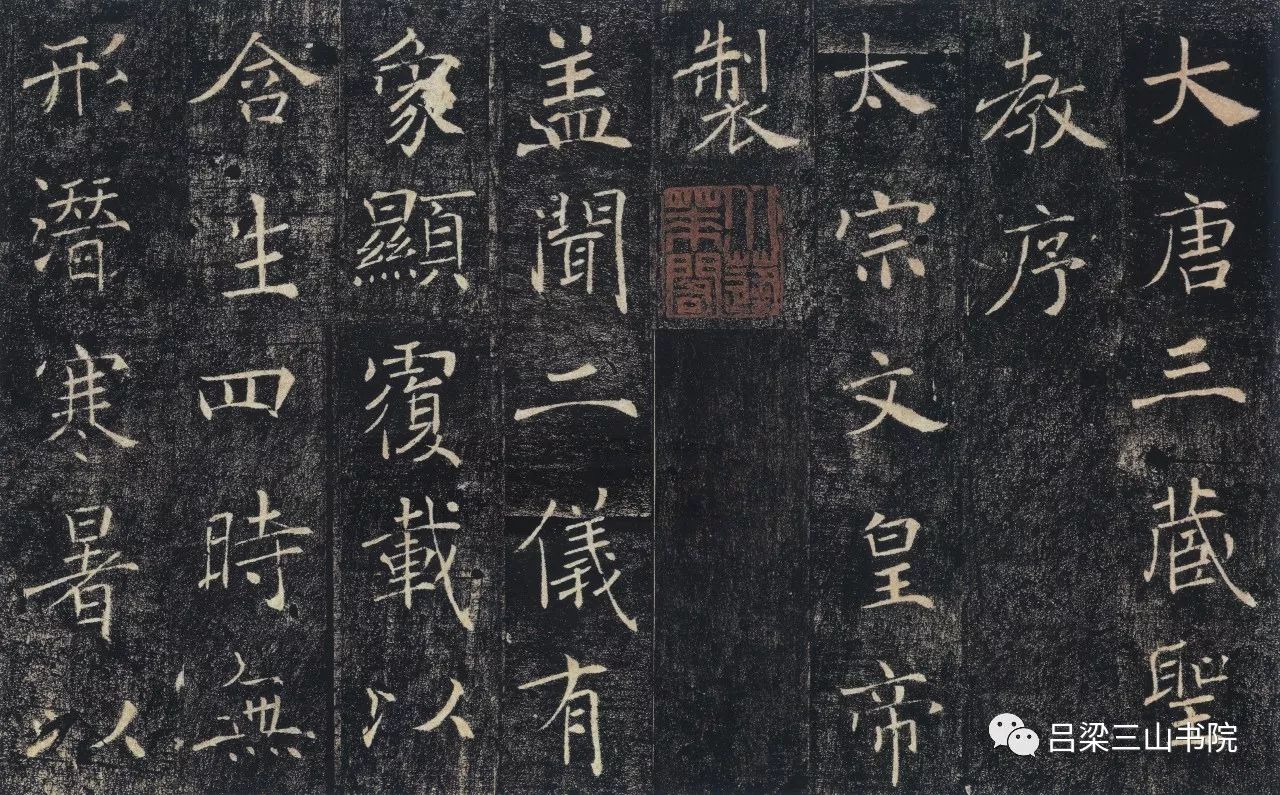 大唐三藏聖
教序
太宗文皇帝
製
蓋聞二儀有
象顯覆載以
含生四時無
形潛寒暑以
吕梁三山书院